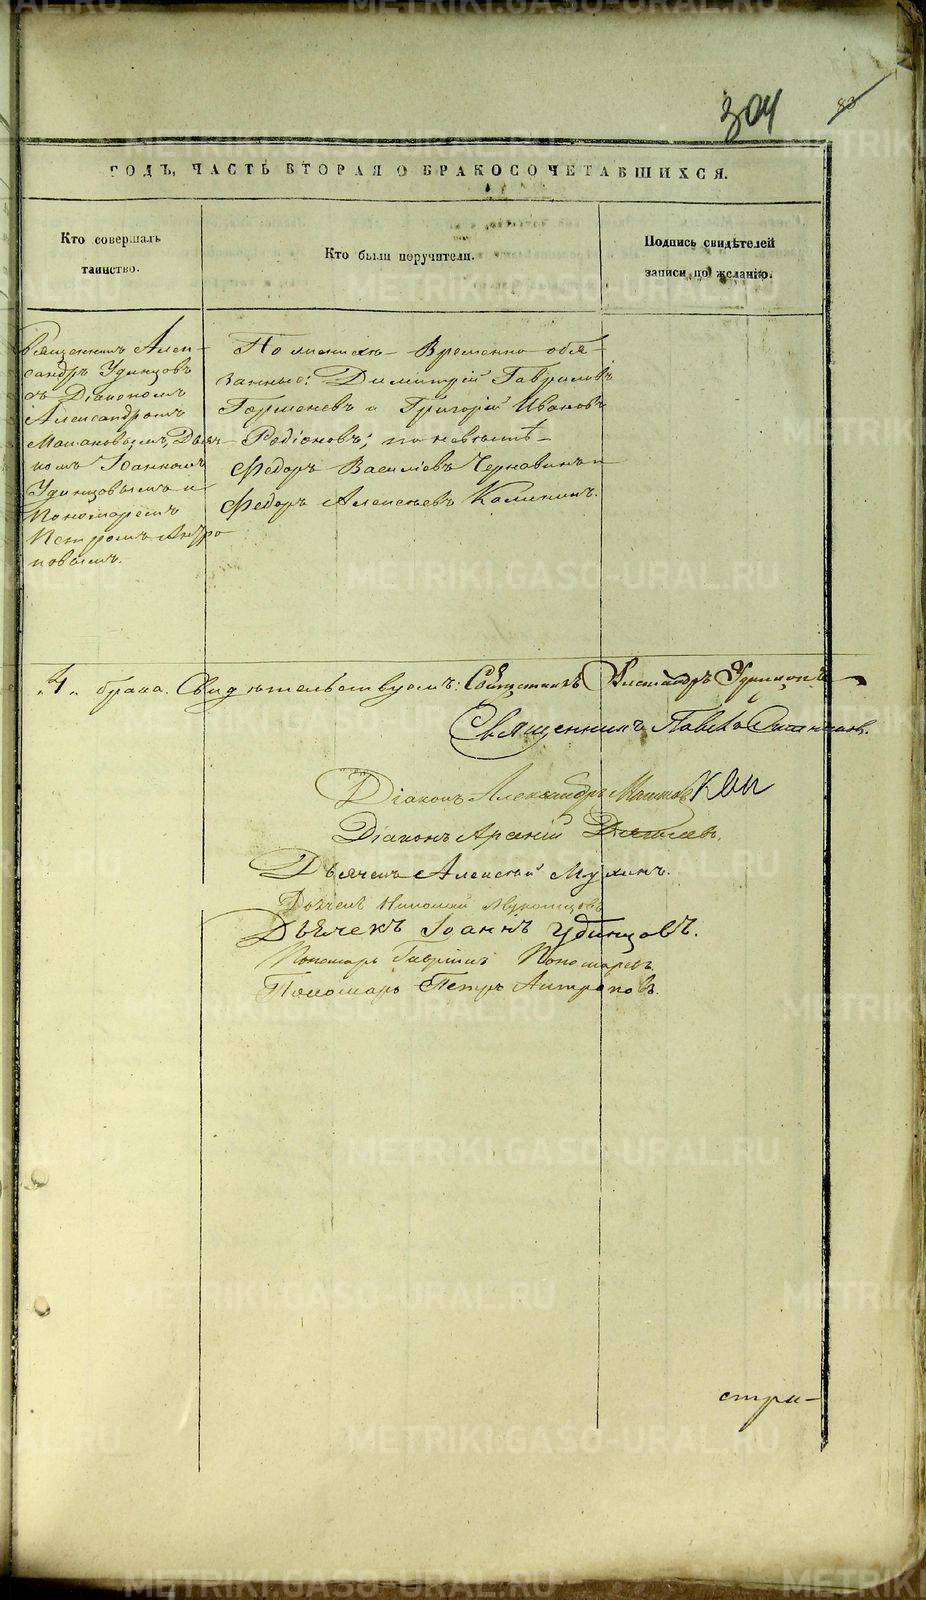 304
80
ГОДЪ, ЧАСТЬ ВТОРАЯ О БРАКОСОЧЕТАВШИХСЯ.
Кто совершалъ
таинство.
Кто были поручители.
Подпись свидѣтелей
записи по желанію.
Священникъ Алек-
сандръ Удинцовъ
съ Діакономъ
Александромъ
Дьяч-
комъ Іоанномъ
Удинцовымъ и
Пономаремъ
Петромъ Антро
повымъ.
По женихѣ Временно обя-
занные: Димитрій Гавриловъ
и Григорій Ивановъ
Родіоновъ; по невѣстѣ
Ѳедоръ Василіевъ Черновинъ и
Ѳедоръ Алексѣевъ Калининъ.
"4" брака. Свидѣтельствуемъ: Священникъ Александръ Удинцовъ
Священникъ Павелъ
Діаконъ Александръ
Діаконъ Арсеній
Дьячекъ Алексѣй Мухинъ.
Дьячекъ Николай
Дьячекъ Іоаннъ Удинцовъ.
Пономарь Гавріилъ Пономаревъ.
Пономарь Петръ Антроповъ.
стри-
METRIKI.GASO-URAL.RU